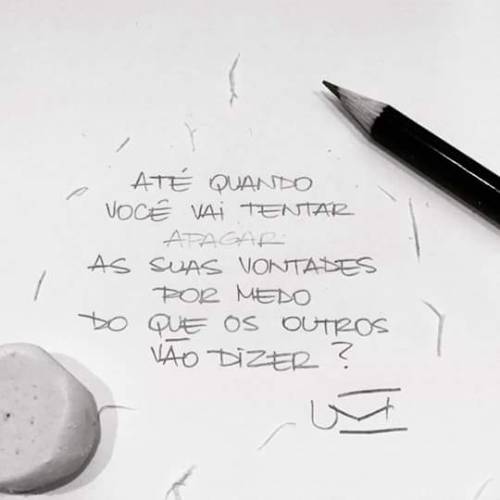 ATÉ QUANDO
VOCÊ VAI TENTAR
APAGAR
AS SUAS VONTADES
POR MEDO
DO QUE OS OUTROS
VÃO DIZER?